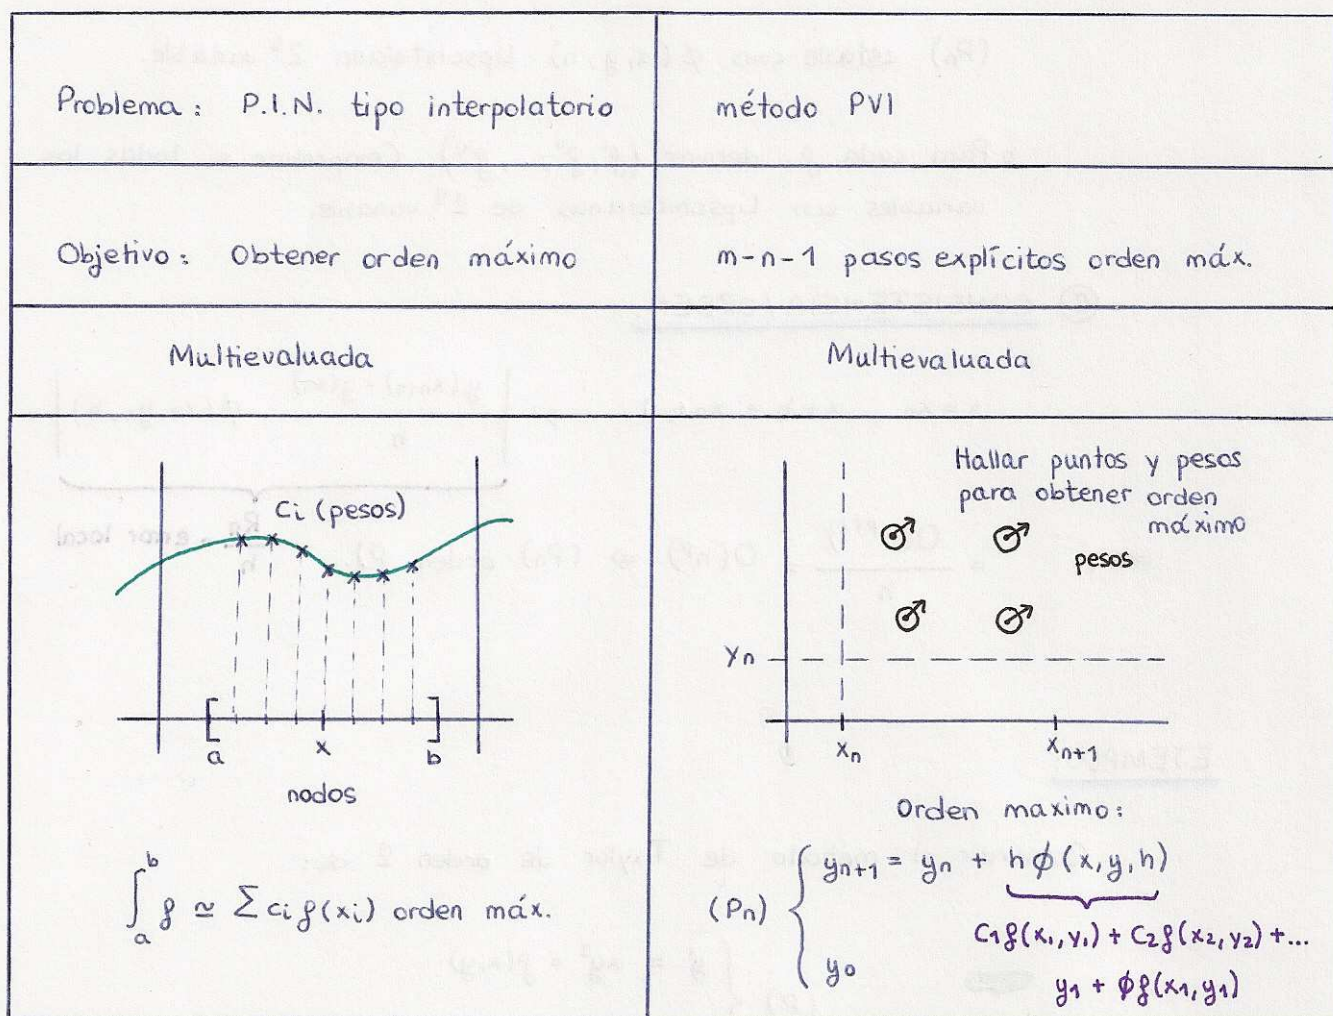 Problema: P.I.N. tipo interpolatorio
método PVI
Objetivo: Obtener orden máximo
m-n-1 pasos explícitos orden máx.
Multievaluada
Multievaluada
Ci (pesos)
[ a x b ]
nodos
∫_a^b f ≃ Σ ci f(xi) orden máx.
Hallar puntos y pesos
para obtener orden
máximo
pesos
yn
xn xn+1
Orden maximo:
(Pn) { yn+1 = yn + h φ(x,y,h)
C1 f(x1,y1) + C2 f(x2,y2) + ...
y0
y1 + φf(x1,y1)